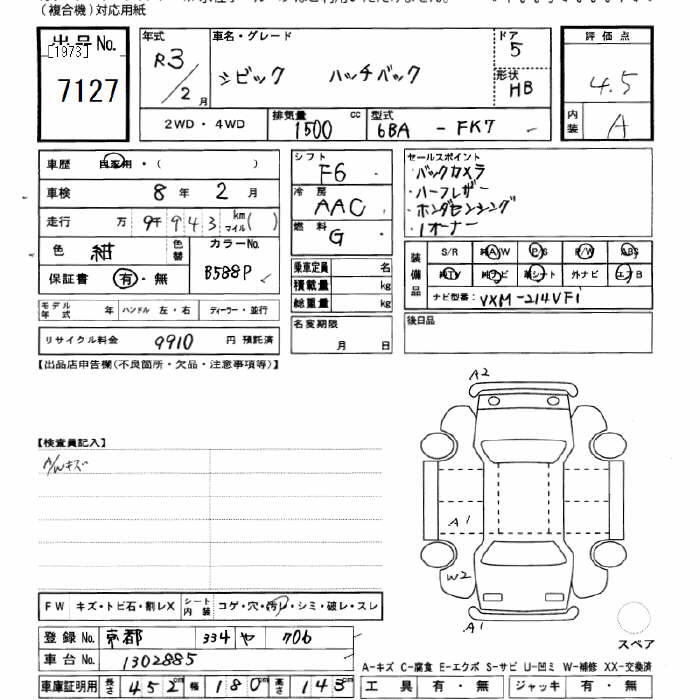 (複合機)対応用紙
出品No.
[1973]
7127
年式 R3/2月
車名・グレード
シビック ハッチバック
ドア 5
形状 HB
2WD・4WD
排気量 1500 cc
型式 6BA - FK7
評価点
4.5
内装 A
車歴 自家用・( )
車検 8年 2月
走行 万 9千 9 4 3 km マイル( )
色 紺 色替
カラーNo. B588P
保証書 有・無
モデル年式 年 ハンドル 左・右 ディーラー・並行
リサイクル料金 9910 円 預託済
シフト F6
冷房 AAC
燃料 G
乗車定員 名
積載量 kg
総重量 kg
名変期限
月 日
セールスポイント
・バックカメラ
・ハーフレザー
・ホンダセンシング
・1オーナー
装備品
S/R 純A/W P/S P/W ABS
純TV 純ナビ 革シート 外ナビ エアB
ナビ型番: VXM-214VFi
後日品
【出品店申告欄(不良箇所・欠品・注意事項等)】
【検査員記入】
A/Wキズ
FW キズ・トビ石・割レX
シート内装 コゲ・穴・汚レ・シミ・破レ・スレ
登録No. 京都 334 ヤ 706
車台No. 1302885
車庫証明用 長さ 452cm 幅 180cm 高さ 143cm
A2
A1
W2
A1
スペア
A-キズ C-腐食 E-エクボ S-サビ U-凹ミ W-補修 XX-交換済
工具 有・無 ジャッキ 有・無